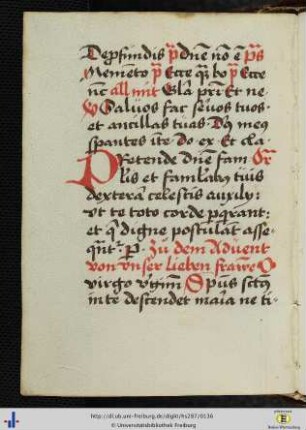 Depfundis p̄ dn̄e nō ē p̄s
Memēto p̄ Ecce q̄ bo p̄ Ecce
nc̄ all mit Gla pr̄i Et ne
Saluos fac seruos tuos
et ancillas tuas Ds̄ meus
sperantes ite do ex Et cla
PRetende dn̄e fam Or̄
lis et famlabꝫ tuis
dexterā celestis auxilÿ:
ut te toto corde perq̄rant:
et q̄ digne postulāt asse-
qn̄tr̄ P Zu dem Aduent
von vnser lieben frawē O
virgo v̄gim Sp̄us sct̄us
in te descendet maia ne ti-
http://dl.ub.uni-freiburg.de/diglit/hs287/0136
© Universitätsbibliothek Freiburg